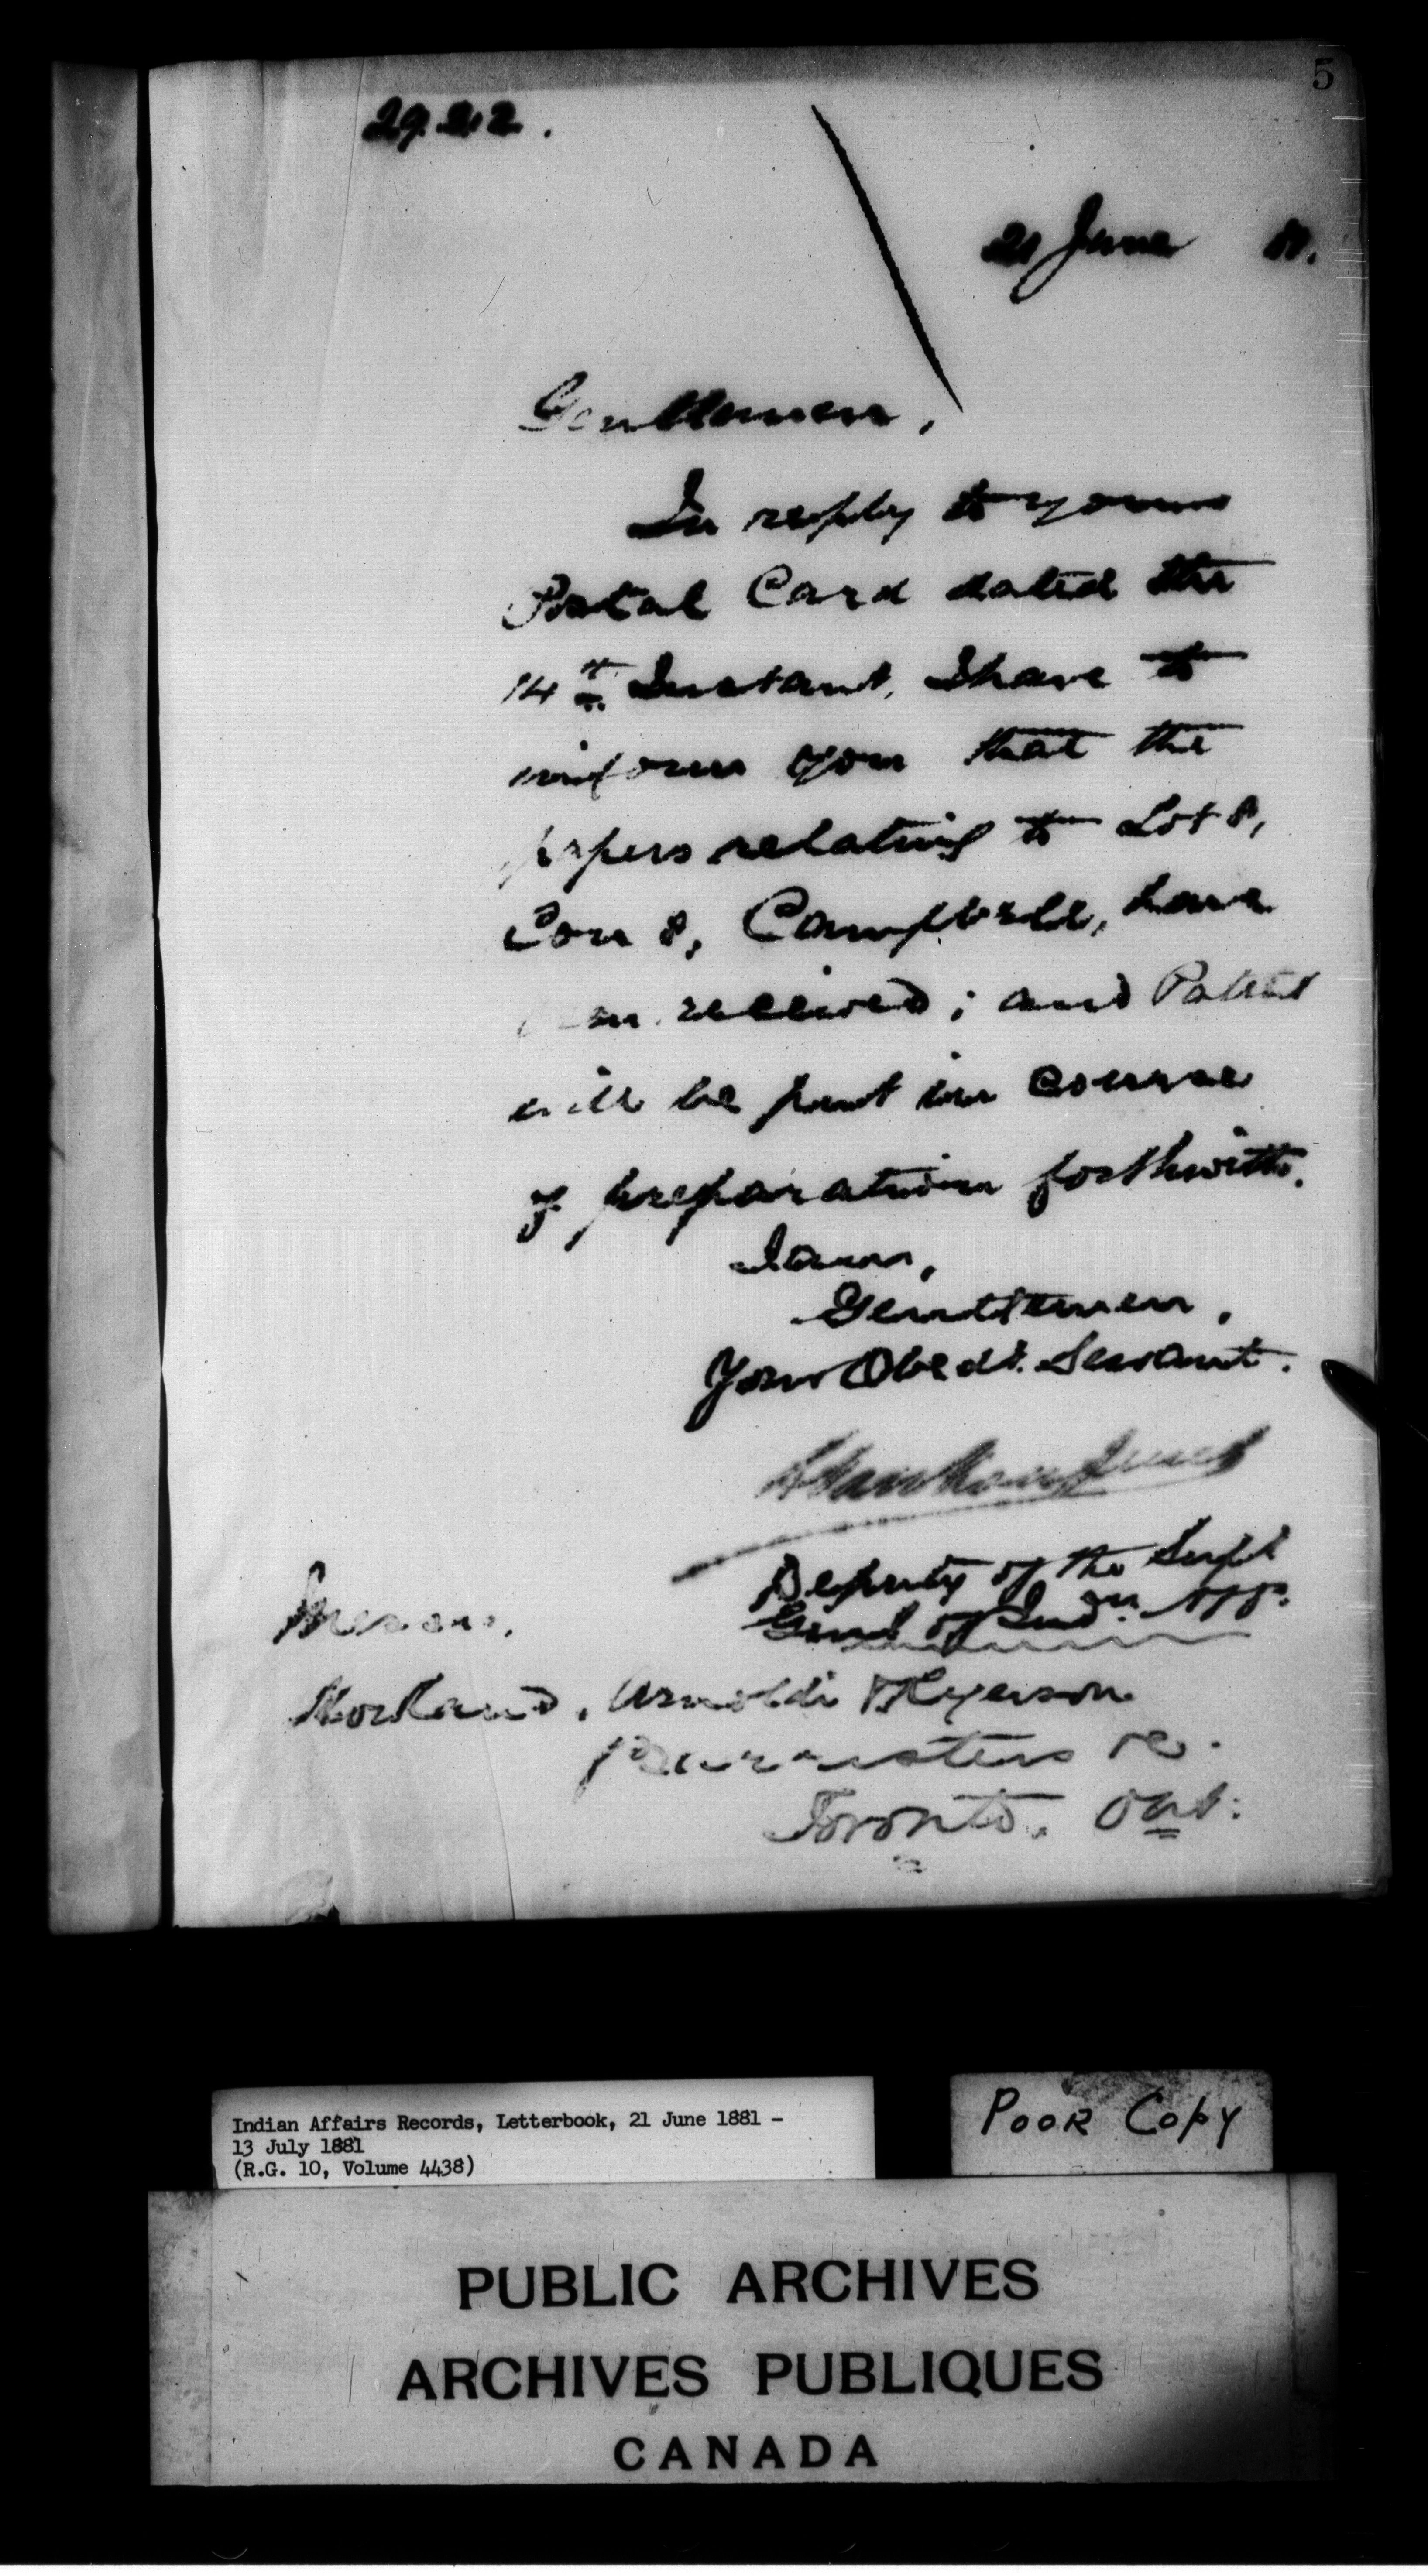 5
29.212.
21 June 81.
Gentlemen,
In reply to your
Postal Card dated the
14th Instant, I have to
inform you that the
papers relating to Lot 8,
Con 8, Campbell, have
been received; and Patent
will be put in course
of preparation forthwith.
I am,
Gentlemen,
Your Obedt. Servant.
Deputy of the Supt
Genl of Indn. Affs.
Messrs.
Morland, Arnoldi & Ryerson
Barristers &c.
Toronto. Ont:
Indian Affairs Records, Letterbook, 21 June 1881 -
13 July 1881
(R.G. 10, Volume 4438)
POOR COPY
PUBLIC ARCHIVES
ARCHIVES PUBLIQUES
CANADA